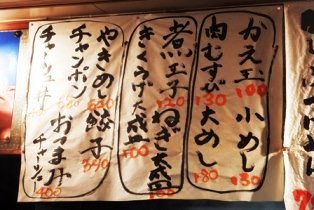 かえ玉 100
小めし 130
肉むすび 130
大めし 180
煮玉子 120
ねぎ大盛
きくらげ大盛 100
やきめし 630
餃子
チャンポン
おつまみ
チャーシュー
チャーシュー丼
400